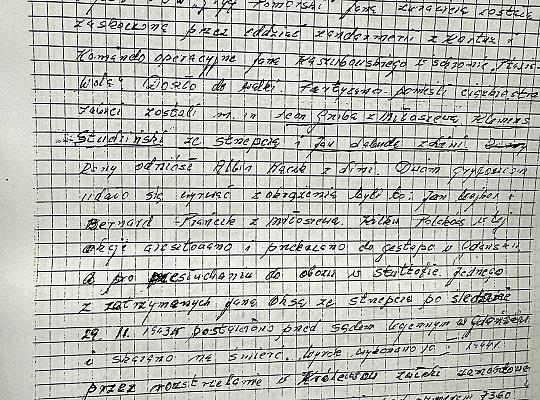 Gryf Pomorski" Jana została
zaskoczona przez oddział żandarmerii z Kartuz i
Komando operacyjne Jana Kaszubowskiego w schronie „Ptasia-
Wola". Doszło do walki. Partyzanci ponieśli ciężkie stra
Zabici zostali m.in. Jan Gryba z Miłoszewa, Klemens
Studziński ze Strzepcza i Jan Labuda z Linii
Rany odniósł Albin Hacba z Linii. Dwom gryfowcom
udało się wyrwać z okrążenia byli to: Jan Wajber i
Bernard z Miłoszewa. Kilku Polaków w tej
akcji aresztowano i przekazano do gestapo w Gdańsku
a po przesłuchaniu do obozu w Stutthofie. Jednego
z zatrzymanych Jana Oksą ze Strzepcza po śledztwie
29. 11. 1943 r. postawiono przed sądem wojennym w Gdańsku
i skazano na śmierć. Wyrok wykonano 1944 r.
przez rozstrzelanie w Królewcu zwłoki
numerem 7360